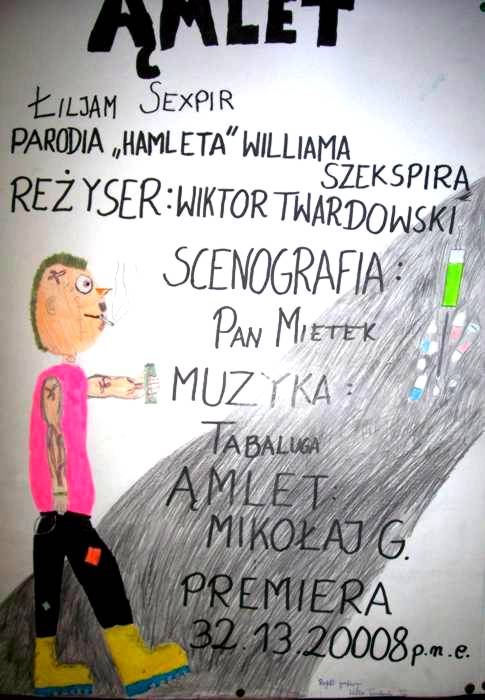 ĄMLET
ŁILJAM SEXPIR
PARODIA „HAMLETA“ WILLIAMA
SZEKSPIRA
REŻYSER: WIKTOR TWARDOWSKI
SCENOGRAFIA:
PAN MIETEK
MUZYKA:
TABALUGA
ĄMLET:
MIKOŁAJ G.
PREMIERA
32.13.20008 p.n.e.